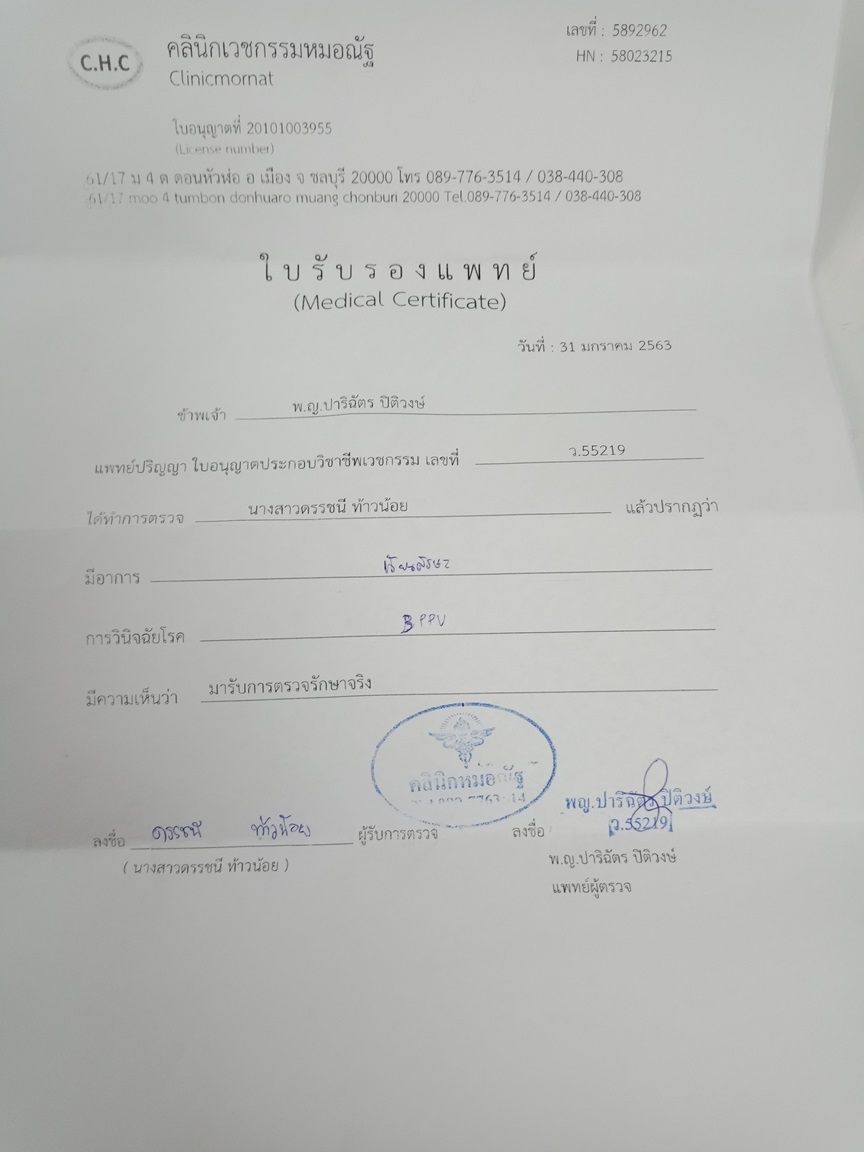 C.H.C
คลินิกเวชกรรมหมอณัฐ
Clinicmornat
เลขที่ : 5892962
HN : 58023215
ใบอนุญาตที่ 20101003955
(License number)
61/17 ม 4 ต ดอนหัวฬ่อ อ เมือง จ ชลบุรี 20000 โทร 089-776-3514 / 038-440-308
61/17 moo 4 tumbon donhuaro muang chonburi 20000 Tel.089-776-3514 / 038-440-308
ใบรับรองแพทย์
(Medical Certificate)
วันที่ : 31 มกราคม 2563
ข้าพเจ้า พ.ญ.ปาริฉัตร ปิติวงษ์
แพทย์ปริญญา ใบอนุญาตประกอบวิชาชีพเวชกรรม เลขที่ ว.55219
ได้ทำการตรวจ นางสาวดรรชนี ท้าวน้อย แล้วปรากฏว่า
มีอาการ เวียนศีรษะ
การวินิจฉัยโรค BPPV
มีความเห็นว่า มารับการตรวจรักษาจริง
คลินิกหมอณัฐ
พญ.ปาริฉัตร ปิติวงษ์
ว.55219
ลงชื่อ ดรรชนี ท้าวน้อย ผู้รับการตรวจ ลงชื่อ
( นางสาวดรรชนี ท้าวน้อย ) พ.ญ.ปาริฉัตร ปิติวงษ์
แพทย์ผู้ตรวจ